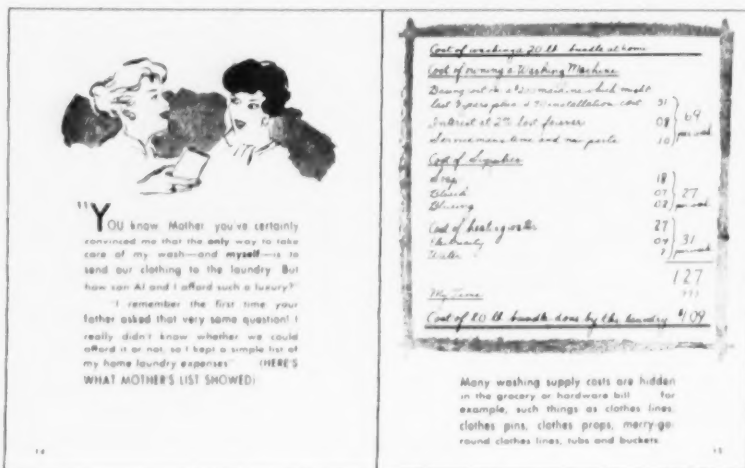 "YOU know Mother, you've certainly
convinced me that the only way to take
care of my wash—and myself—is to
send our clothing to the laundry. But
how can Al and I afford such a luxury?"
"I remember the first time your
father asked that very same question! I
really didn't know whether we could
afford it or not, so I kept a simple list of
my home laundry expenses" (HERE'S
WHAT MOTHER'S LIST SHOWED)
14
Cost of washing a 20 lb bundle at home
Cost of owning a Washing Machine
Basing cost on a machine which might
last 9 years plus installation cost 31
Interest at 2% lost forever 08
Service mans time and new parts 10
69
per week
Cost of Supplies
Soap 18
Bleach 07
Bluing 02
27
per week
Cost of heating water 27
Electricity 04
Water ?
31
per week
127
My Time ???
Cost of 20 lb bundle done by the laundry $1.09
Many washing supply costs are hidden
in the grocery or hardware bill for
example, such things as clothes lines,
clothes pins, clothes props, merry-go-
round clothes lines, tubs and buckets.
15